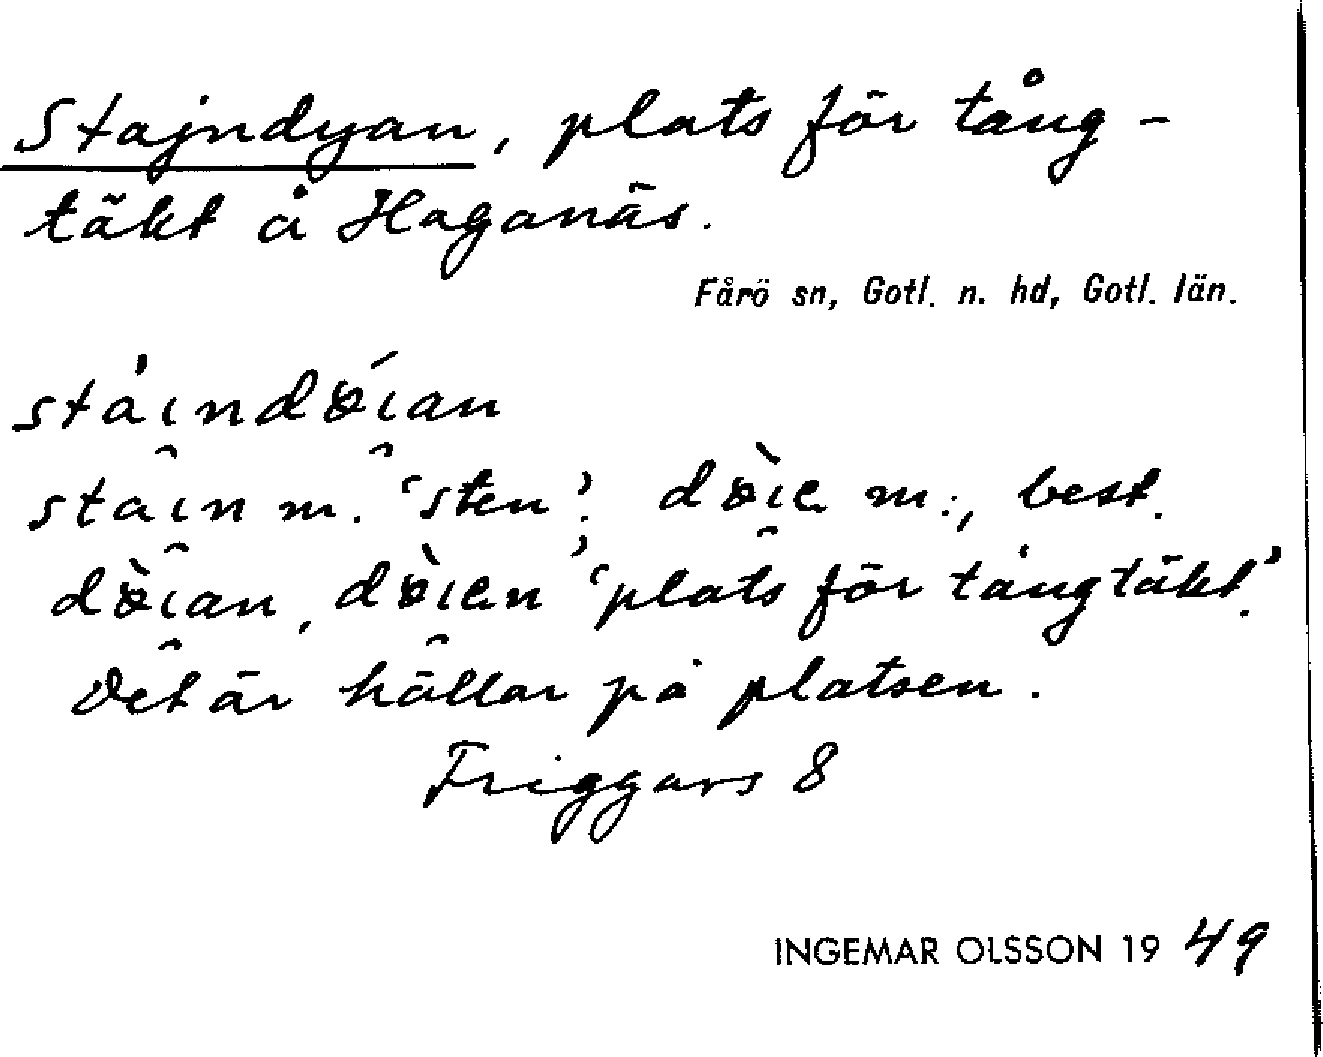 Stajndyan, plats för tång-
täkt å Haganäs.
Fårö sn, Gotl. n. hd, Gotl. län.
stain m. 'sten'; best.
'plats för tångtäkt'.
Det är hällar på platsen.
Friggars 8
INGEMAR OLSSON 19 49